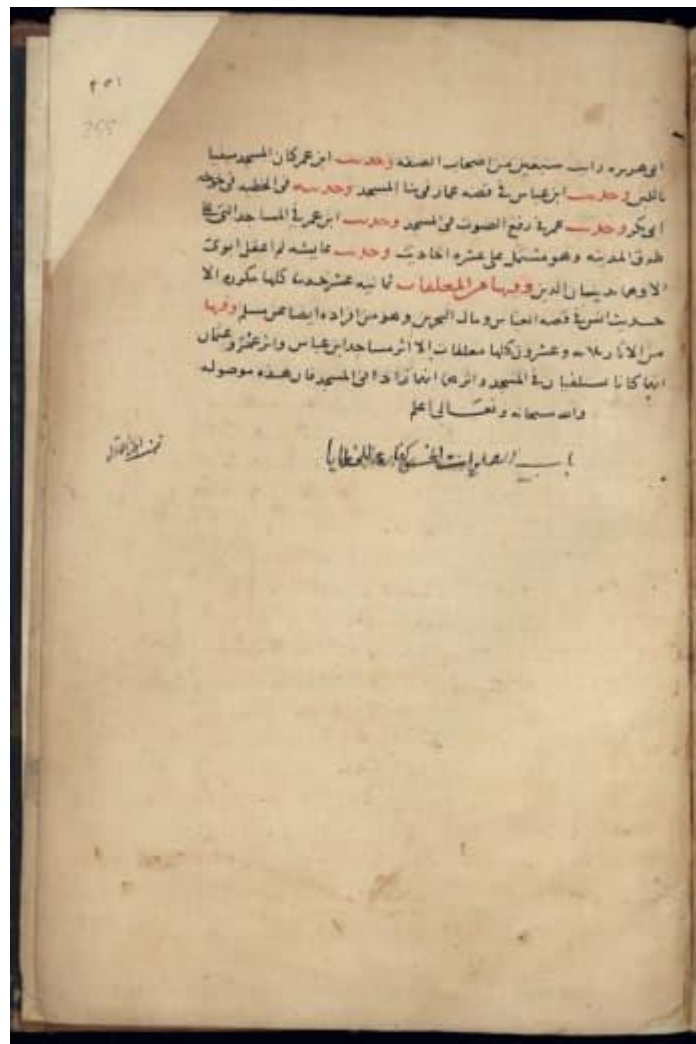 ٢٥١
255
ابى هريره رايت سبعين من اصحاب الصفه وحديث ابن عمر كان المسجد مبنيا
باللبن وحديث ابن عباس فى قصه عمار فى بنا المسجد وحديثه فى الخطبه فى خوخه
ابى بكر وحديث عمر فى رفع الصوت فى المسجد وحديث ابن عمر فى المساجد التى على
طرق المدينه وهو مشتمل على عشره احاديث وحديث عايشه لم اعقل ابوى
الا وهما يدينان الدين وفيها من المعلقات ثمانيه عشر حديثا كلها مكرره الا
حديث انس فى قصه العباس ومال البحرين وهو من افراده ايضا عن مسلم وفيها
من الاثار ثلاثه وعشرون كلها معلقات الا اثر مساجد ابن عباس واثر عمر وعثمان
انهما كانا يستلقيان فى المسجد واثر انهما زادا فى المسجد فان هذه موصوله
والله سبحانه وتعالى اعلم
باب الصلوات الخمس كفاره للخطايا